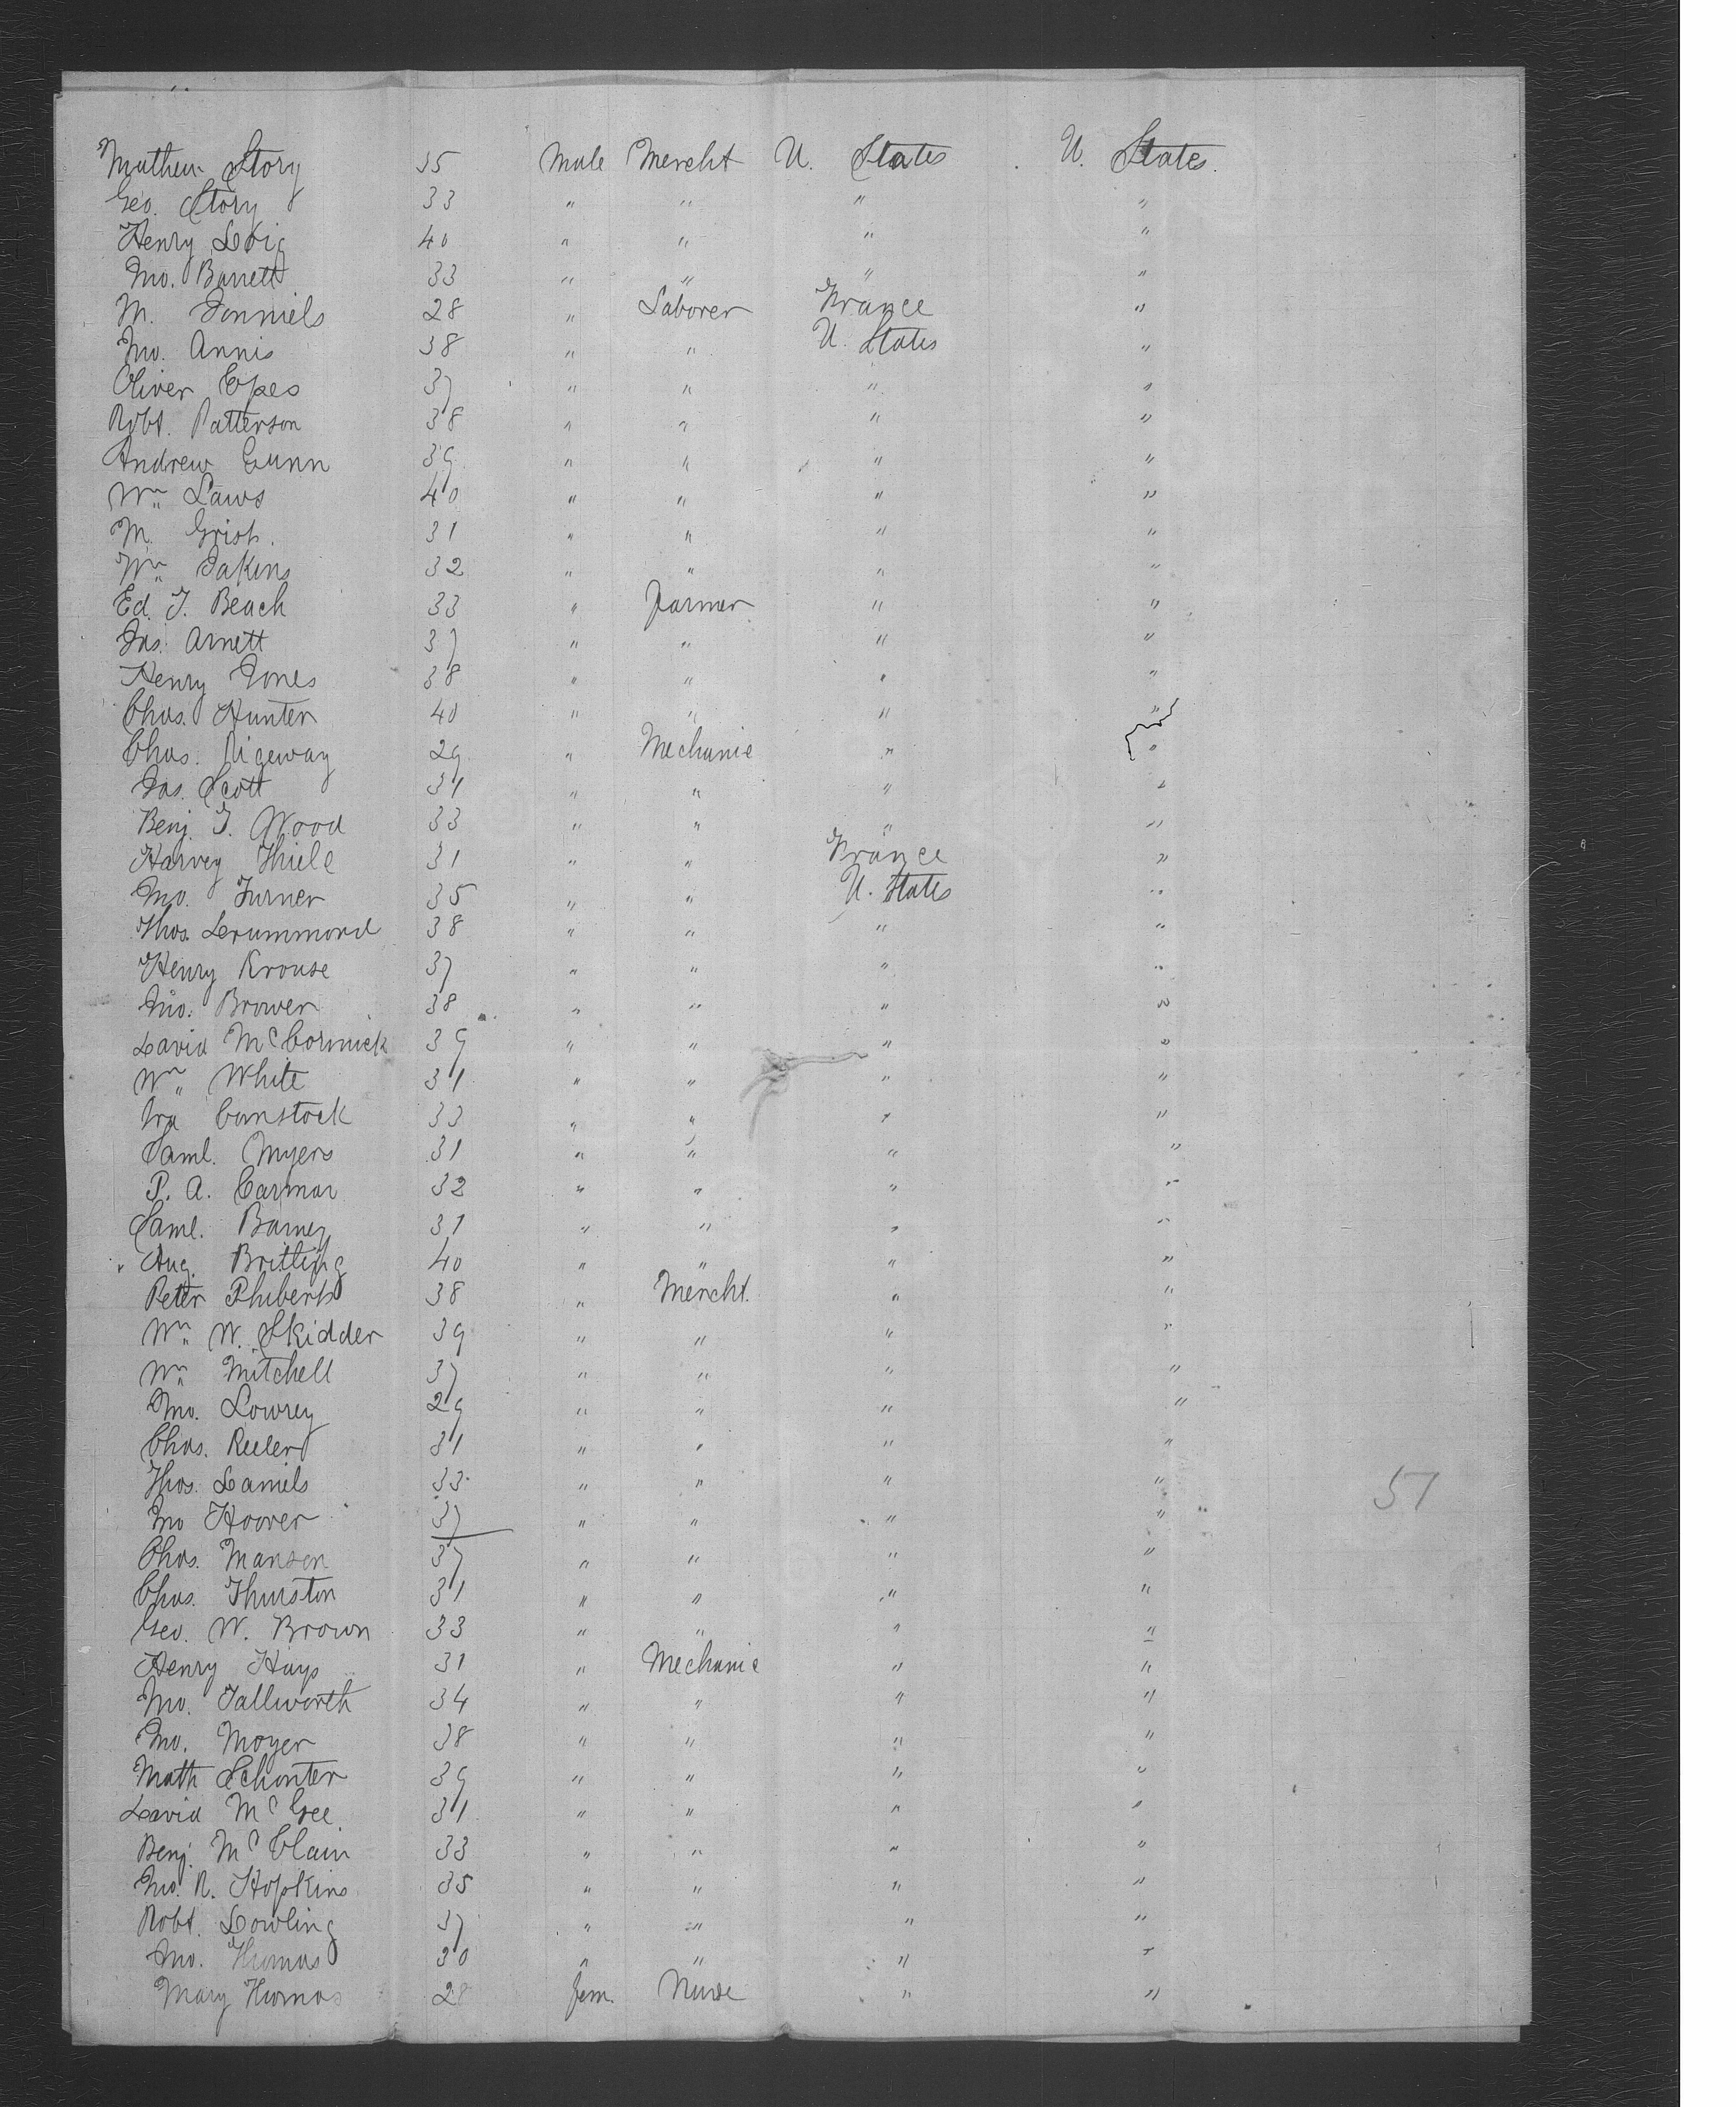 Mathew Story 35 Male Mercht U. States U. States.
Geo. Story 33 " " " "
Henry 40 " " " "
Jno. Barrett 33 " " " "
M. Donniels 28 " Laborer France "
Jno. Annis 38 " " U. States "
Oliver Epes 37 " " " "
Robt. Patterson 38 " " " "
Andrew Gunn 39 " " " "
Wm Laws 40 " " " "
M. 31 " " " "
Wm Jakins 32 " " " "
Ed. J. Beach 33 " Farmer " "
Jas. Arnett 37 " " " "
Henry Jones 38 " " " "
Chas. Hunter 40 " " " "
Chas. Rigeway 29 " Mechanic " "
Jas. Scott 31 " " " "
Benj. T. Wood 33 " " " "
Harvey Thiele 31 " " France "
Jno. Turner 35 " " U. States "
Thos. Drummond 38 " " " "
Henry Krouse 37 " " " "
Jno. Brower 38 " " " "
David McCormick 39 " " " "
Wm White 31 " " " "
Ira Comstock 33 " " " "
Saml. Myers 31 " " " "
P. A. Carmar 32 " " " "
Saml. Barney 31 " " " "
Aug. Brittling 40 " " " "
Peter Phiberts 38 " Mercht. " "
Wm W. Skidder 39 " " " "
Wm Mitchell 37 " " " "
Jno. Lowrey 29 " " " "
Chas. Reeler 31 " " " "
Thos. Daniels 33 " " " "
51
Jno Hoover 37 " " " "
Chas. Manson 37 " " " "
Chas. Thurston 31 " " " "
Geo. W. Brown 33 " " " "
Henry Hays 31 " Mechanic " "
Jno. Tallworth 34 " " " "
Jno. Moyer 38 " " " "
Math Schonter 39 " " " "
David McGee 31 " " " "
Benj. McClain 33 " " " "
Jno. R. Hopkins 35 " " " "
Robt. Dowling 37 " " " "
Jno. Thomas 30 " " " "
Mary Thomas 28 Fem. " "